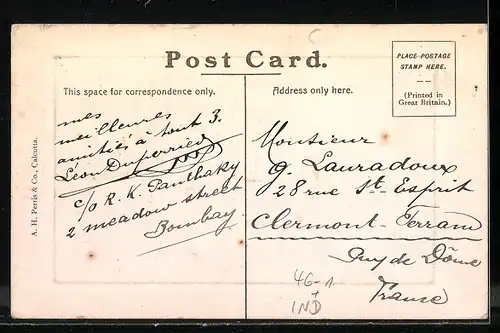 Post Card.
PLACE POSTAGE
STAMP HERE.
(Printed in
Great Britain.)
This space for correspondence only.
Address only here.
mes
meilleures
amitiés à tout 3.
Léon Duperrier
c/o R. K. Panthaky
2 meadow street
Bombay
Monsieur
G. Lauradoux
28 rue St-Esprit
Clermont-Ferrand
Puy de Dôme
France
46-1
IND
A. H. Perris & Co., Calcutta.